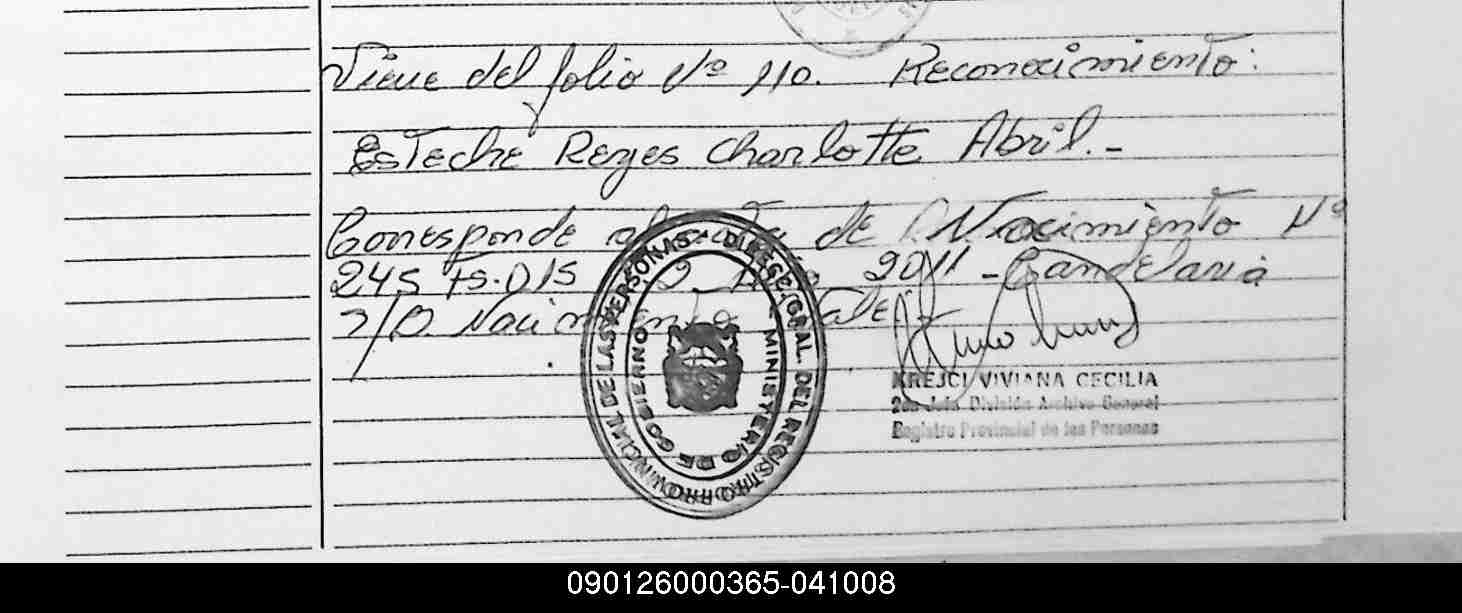 Viene del folio Nº 110. Reconocimiento:
Esteche Reyes Charlotte Abril.-
Corresponde al acta de Nacimiento Nº
245 Fs. 015 2 Año 2011 - Candelaria
Nacimiento Vale
DIREC. GRAL. DEL REGISTRO PROVINCIAL DE LAS PERSONAS
MINISTERIO DE GOBIERNO
KREJCI VIVIANA CECILIA
2da Jefa División Archivo General
Registro Provincial de las Personas
090126000365-041008